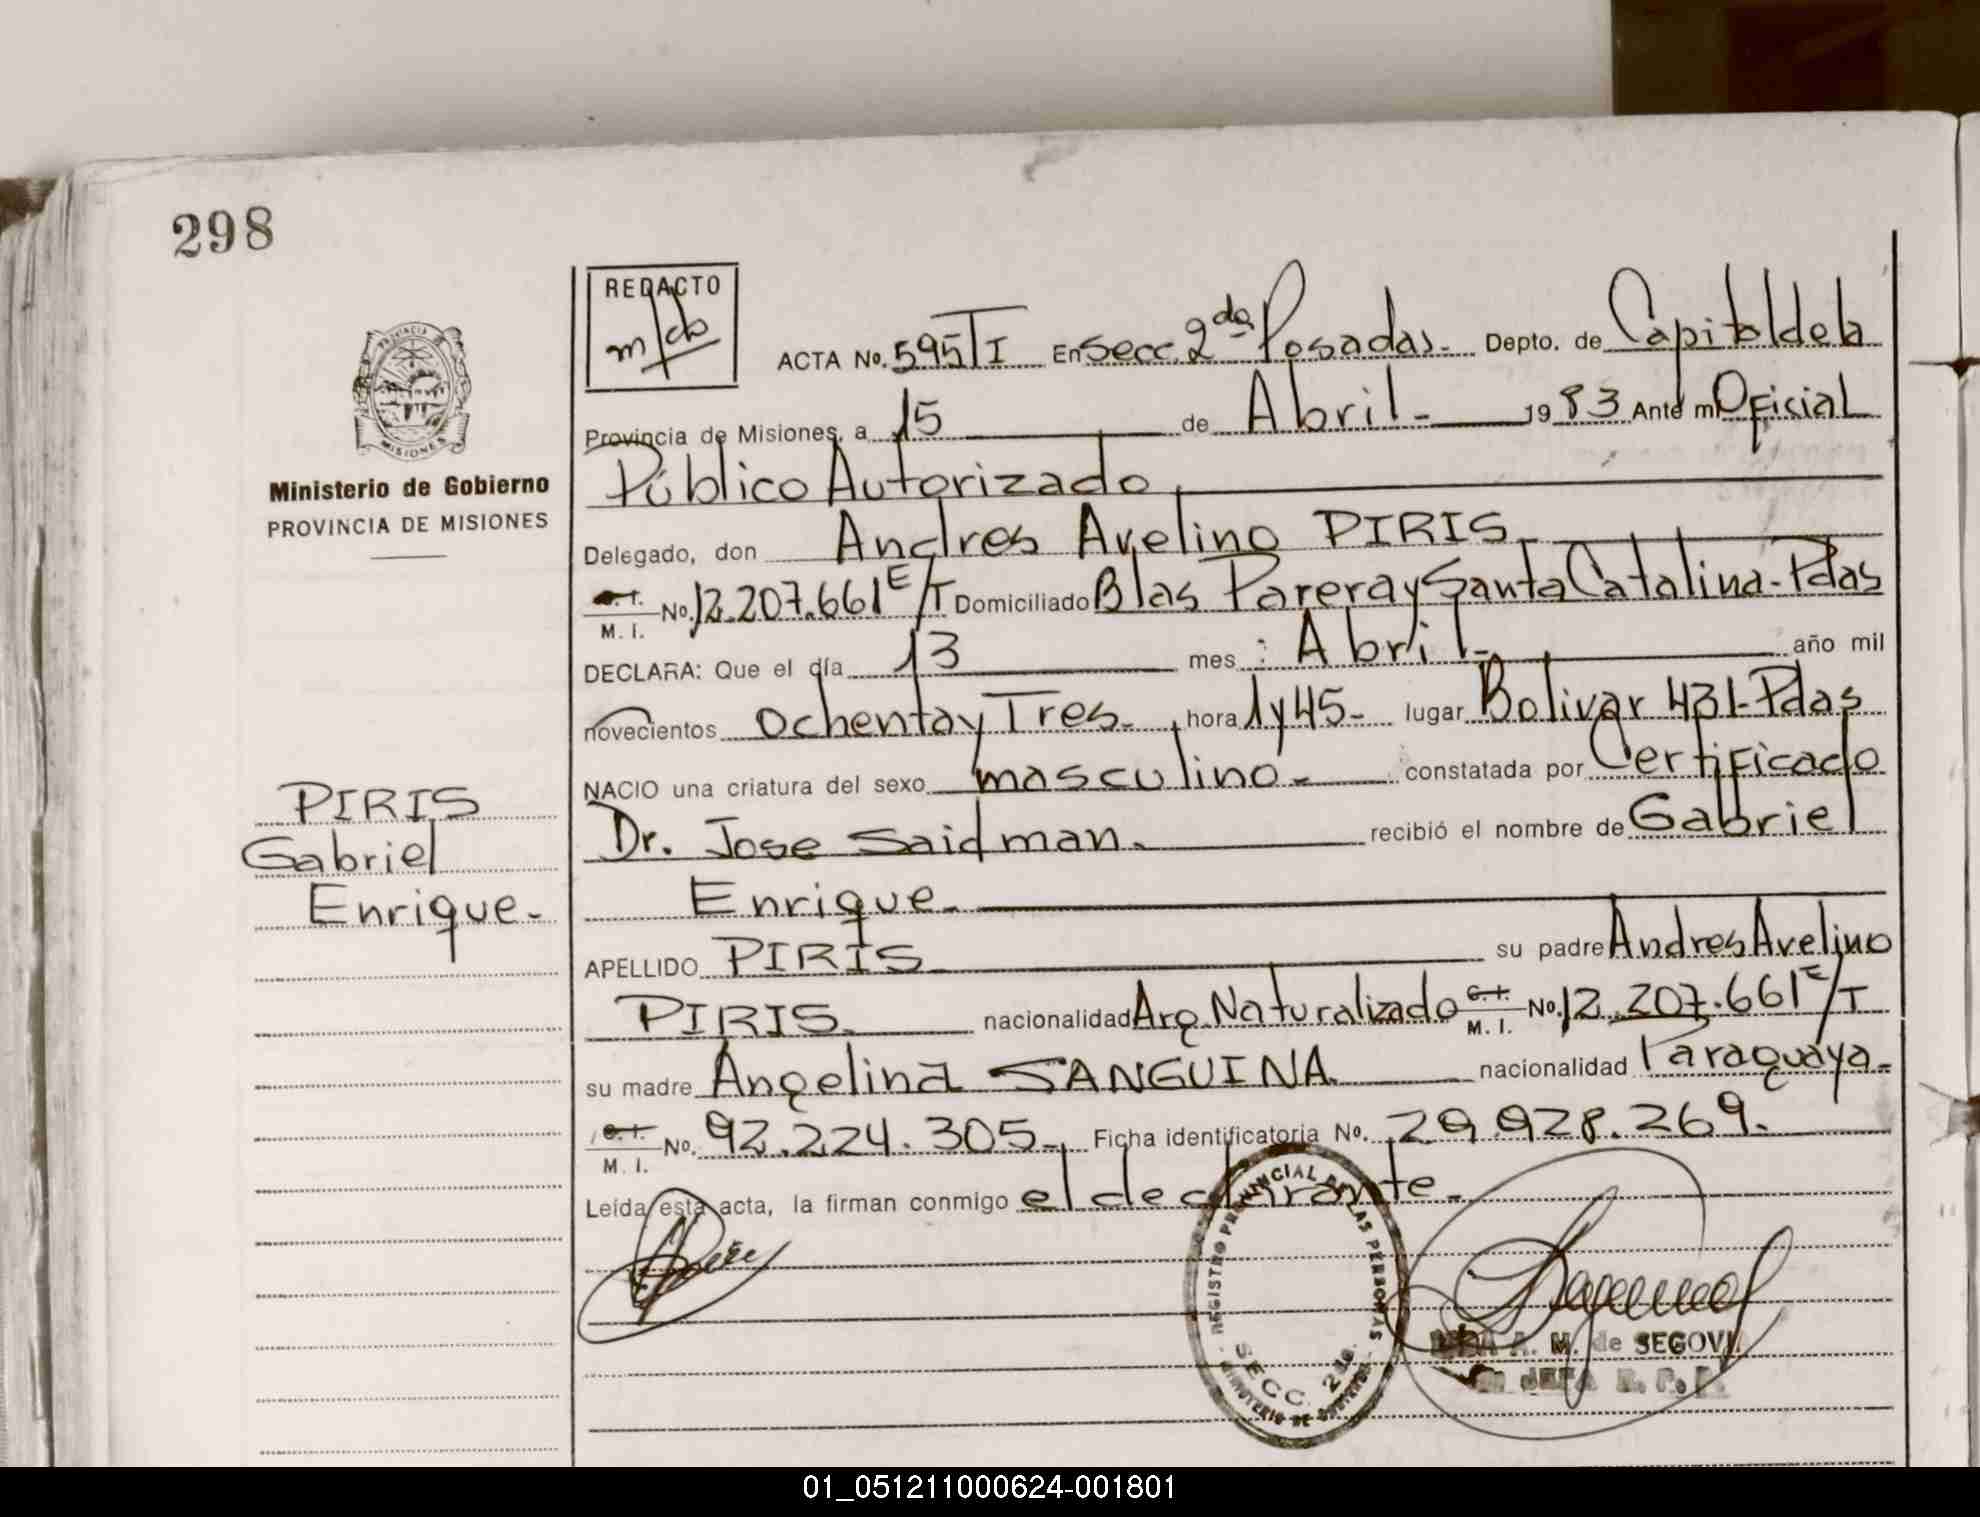 298
REDACTO
ACTA No. 595 T I En Secc. 2da Posadas.- Depto. de Capital de la
Provincia de Misiones, a 15 de Abril - 1983 Ante mi Oficial
Público Autorizado
Delegado, don Andres Avelino PIRIS
C. I.
M. I. No. 12.207.661 E/T Domiciliado Blas Parera y Santa Catalina - Pdas
DECLARA: Que el día 13 mes : Abril - año mil
novecientos ochenta y Tres - , hora 1 y 45 - lugar Bolivar 431 - Pdas
NACIO una criatura del sexo masculino - constatada por Certificado
Dr. Jose Saidman. recibió el nombre de Gabriel
Enrique -
APELLIDO PIRIS su padre Andres Avelino
PIRIS. nacionalidad Arg. Naturalizado C. I. M. I. No. 12.207.661 E/T
su madre Angelina SANGUINA nacionalidad Paraguaya -
C. I.
M. I. No. 92.224.305 - Ficha identificatoria No. 29.928.269.
Leída esta acta, la firman conmigo el declarante -
PROVINCIA
MISIONES
Ministerio de Gobierno
PROVINCIA DE MISIONES
PIRIS
Gabriel
Enrique -
REGISTRO PROVINCIAL DE LAS PERSONAS
SECC. 2da.
MINISTERIO DE GOBIERNO
A. M. de SEGOVIA
JEFA R. P. P.
01_051211000624-001801